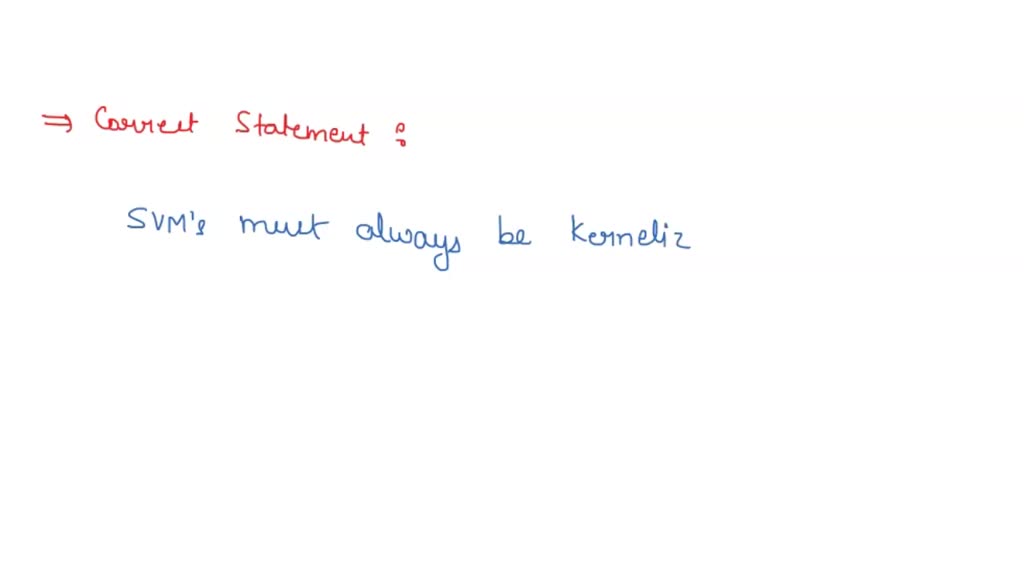 ⇒ Correct Statement :
SVM's must always be Kerneliz